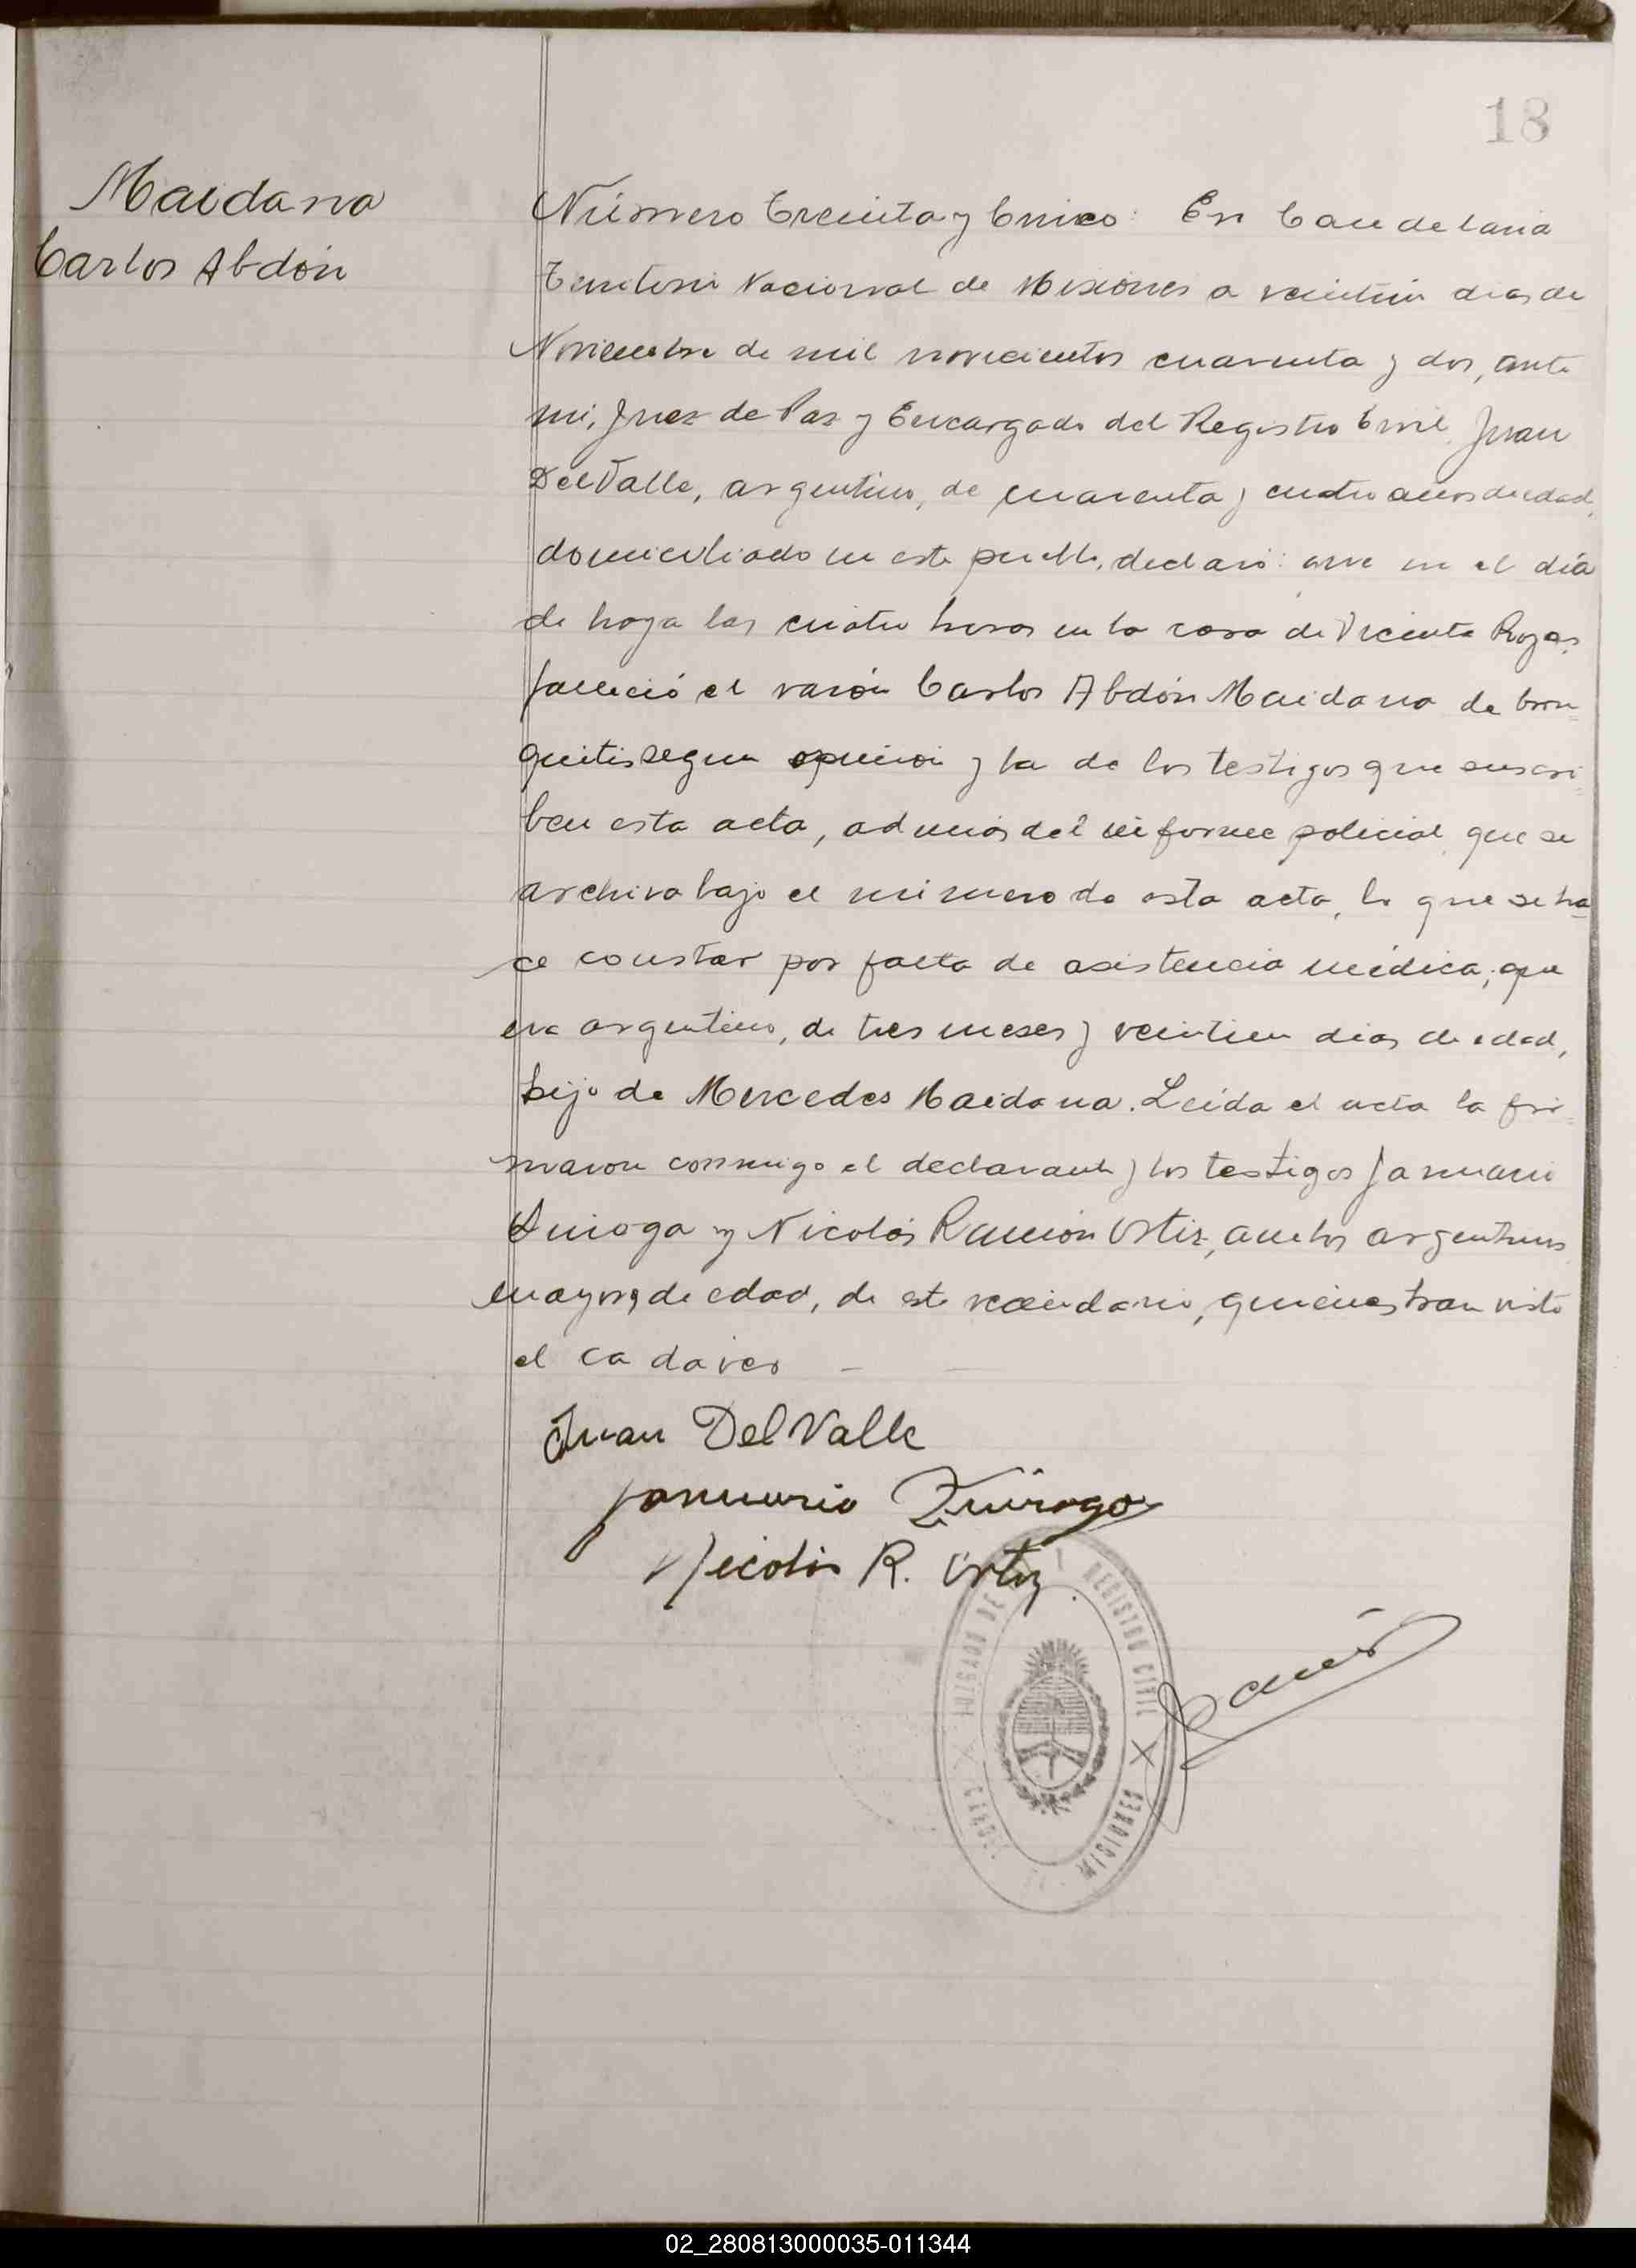 18
Maidana
Carlos Abdón
Número treinta y Cinco: En Candelaria
Territorio Nacional de Misiones a veintiún dias de
Noviembre de mil novecientos cuarenta y dos, ante
mi, Juez de Paz y Encargado del Registro Civil, Juan
Del Valle, argentino, de cuarenta y cuatro años de edad,
domiciliado en este pueblo, declaró: que en el día
de hoy a las cuatro horas en la casa de Vicente Rojas,
falleció el varón Carlos Abdón Maidana de bron=
quitis segun opinión y la de los testigos que suscri=
ben esta acta, ademas del informe policial que se
archiva bajo el número de esta acta, lo que se ha=
ce constar por falta de asistencia médica; que
era argentino, de tres meses y veintiun dias de edad,
hijo de Mercedes Maidana. Leida el acta la fir=
maron conmigo el declarante y los testigos Januario
Quiroga y Nicolás Ramón Ortiz, ambos argentinos
mayores de edad, de este vecindario, quienes han visto
el cadaver
Juan Del Valle
Januario Quiroga
Nicolás R. Ortiz
JUZGADO DE
REGISTRO CIVIL
MISIONES
02_280813000035-011344